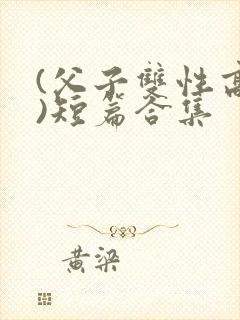 (父子雙性高
)短篇合集
黄梁